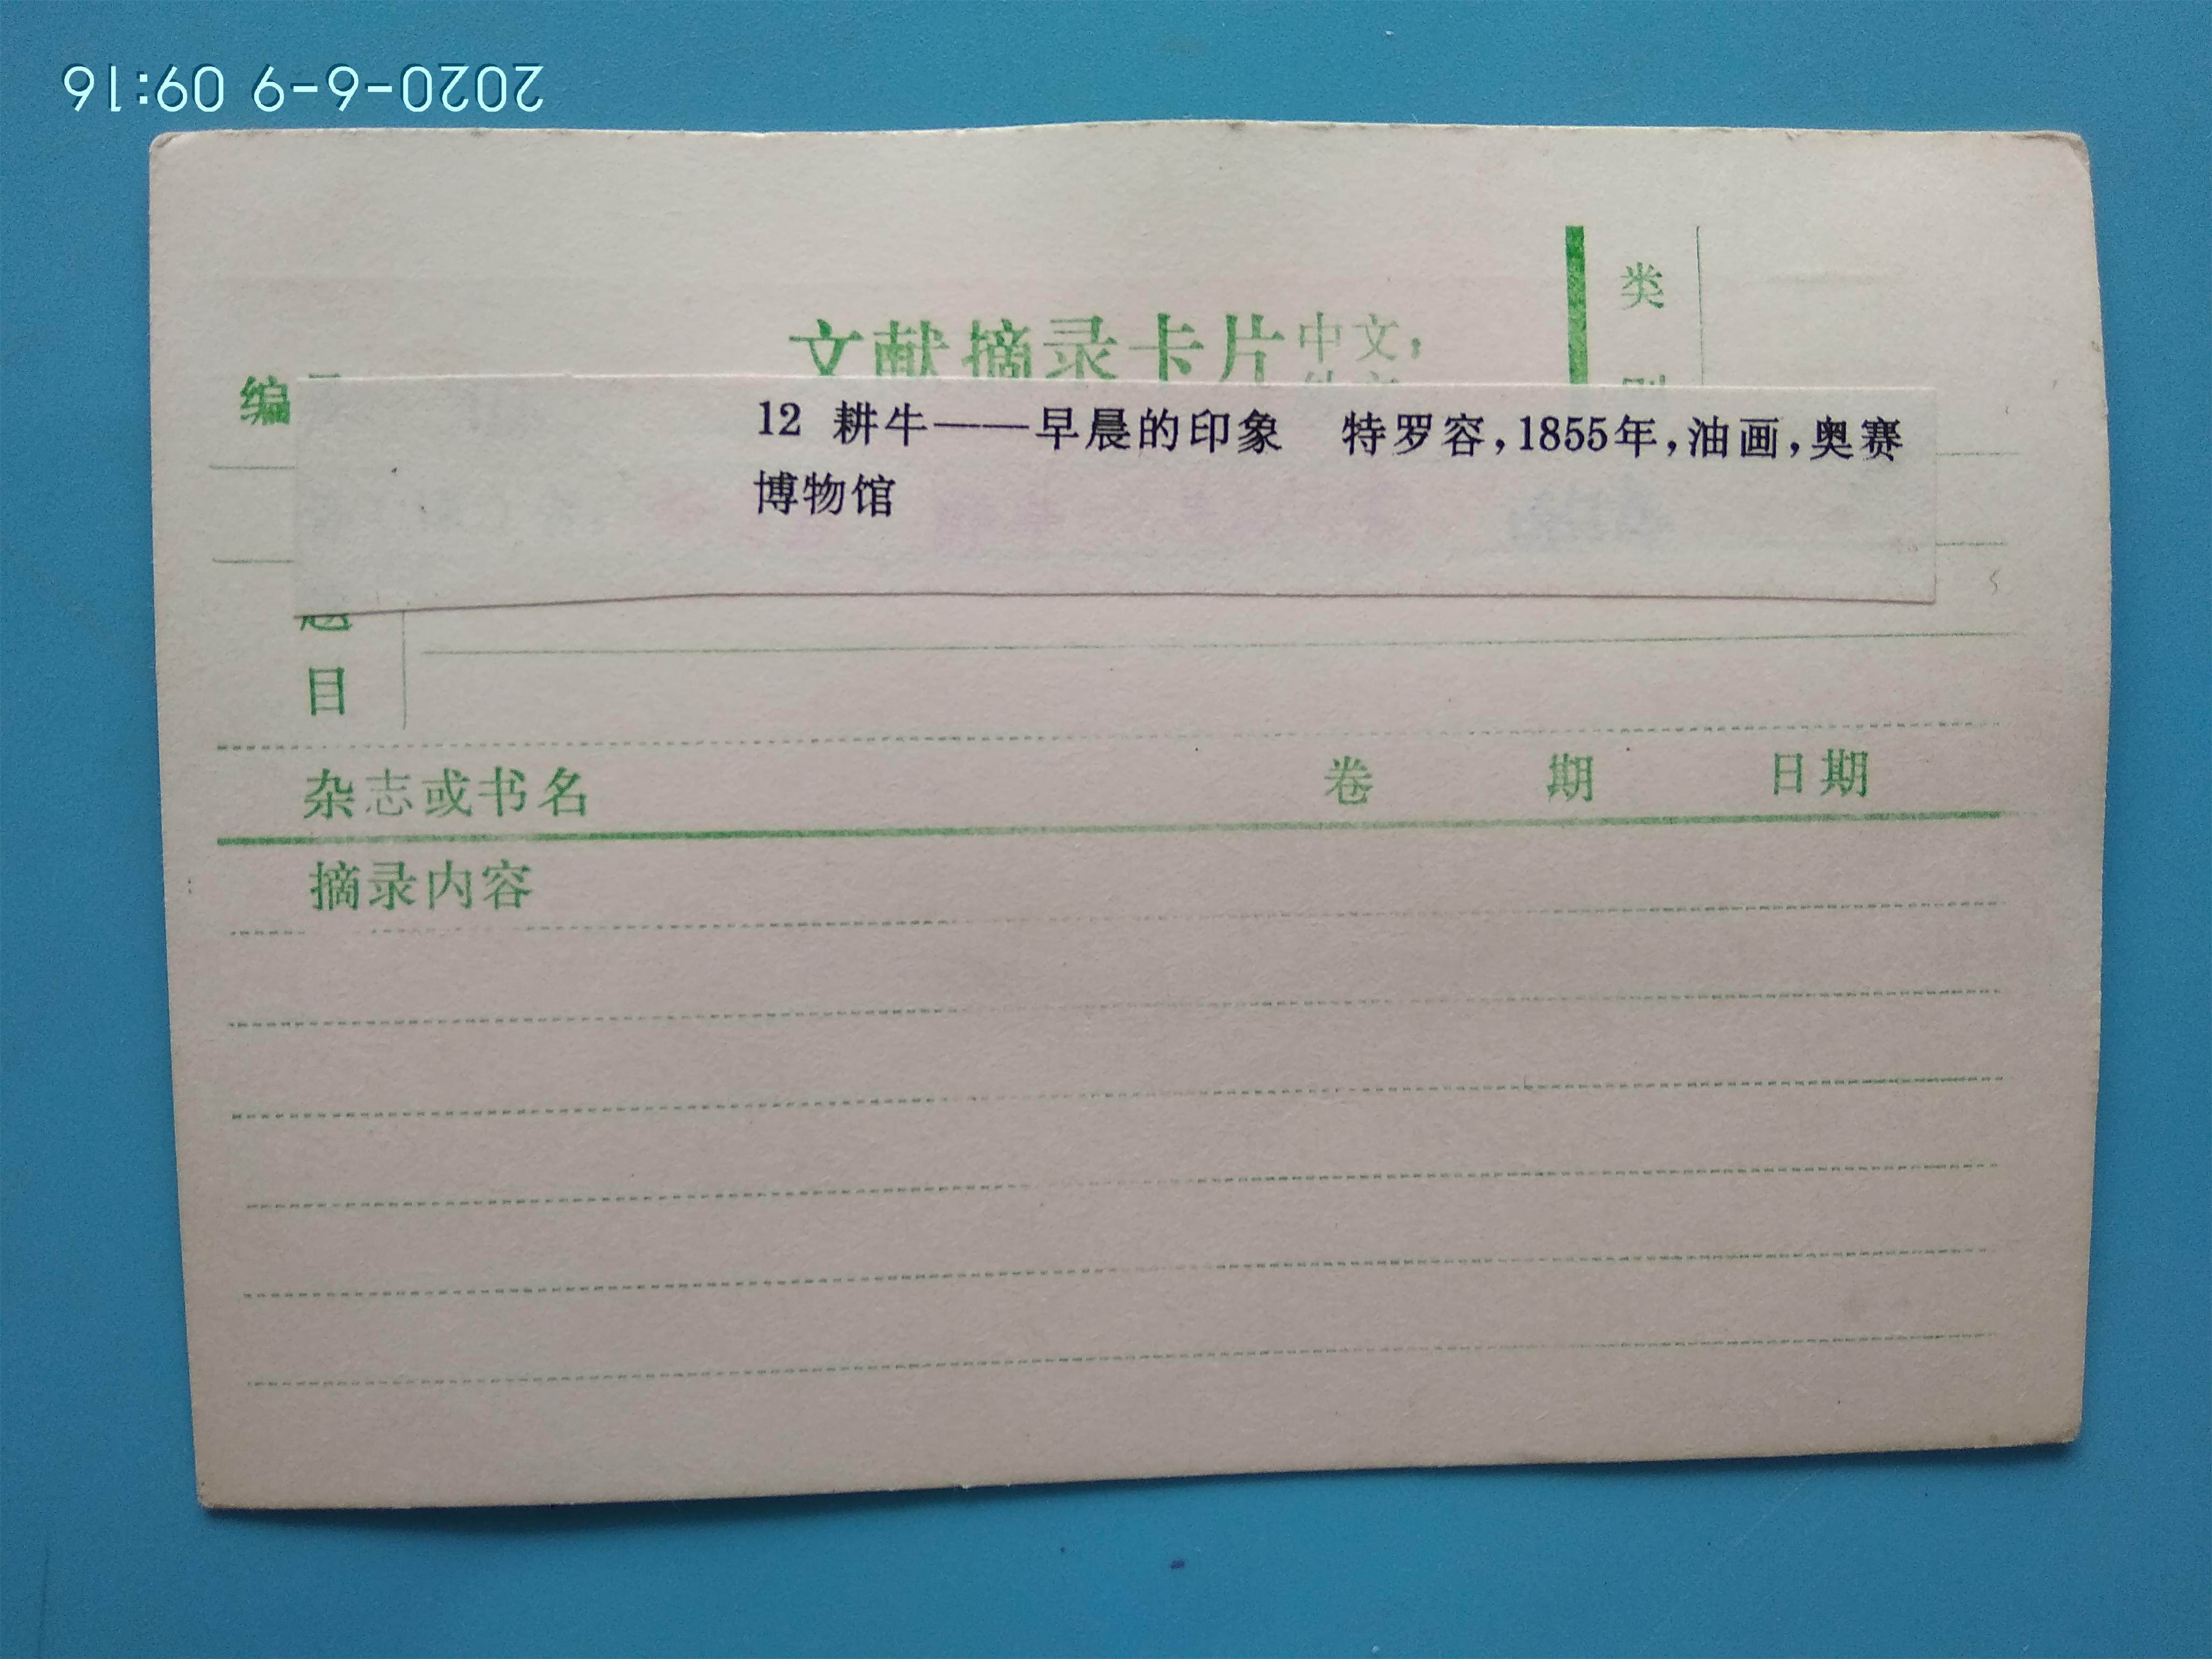 2020-6-9 09:16
类
文献摘录卡片 中文,
编
12 耕牛——早晨的印象 特罗容,1855年,油画,奥赛
博物馆
题
目
杂志或书名 卷 期 日期
摘录内容